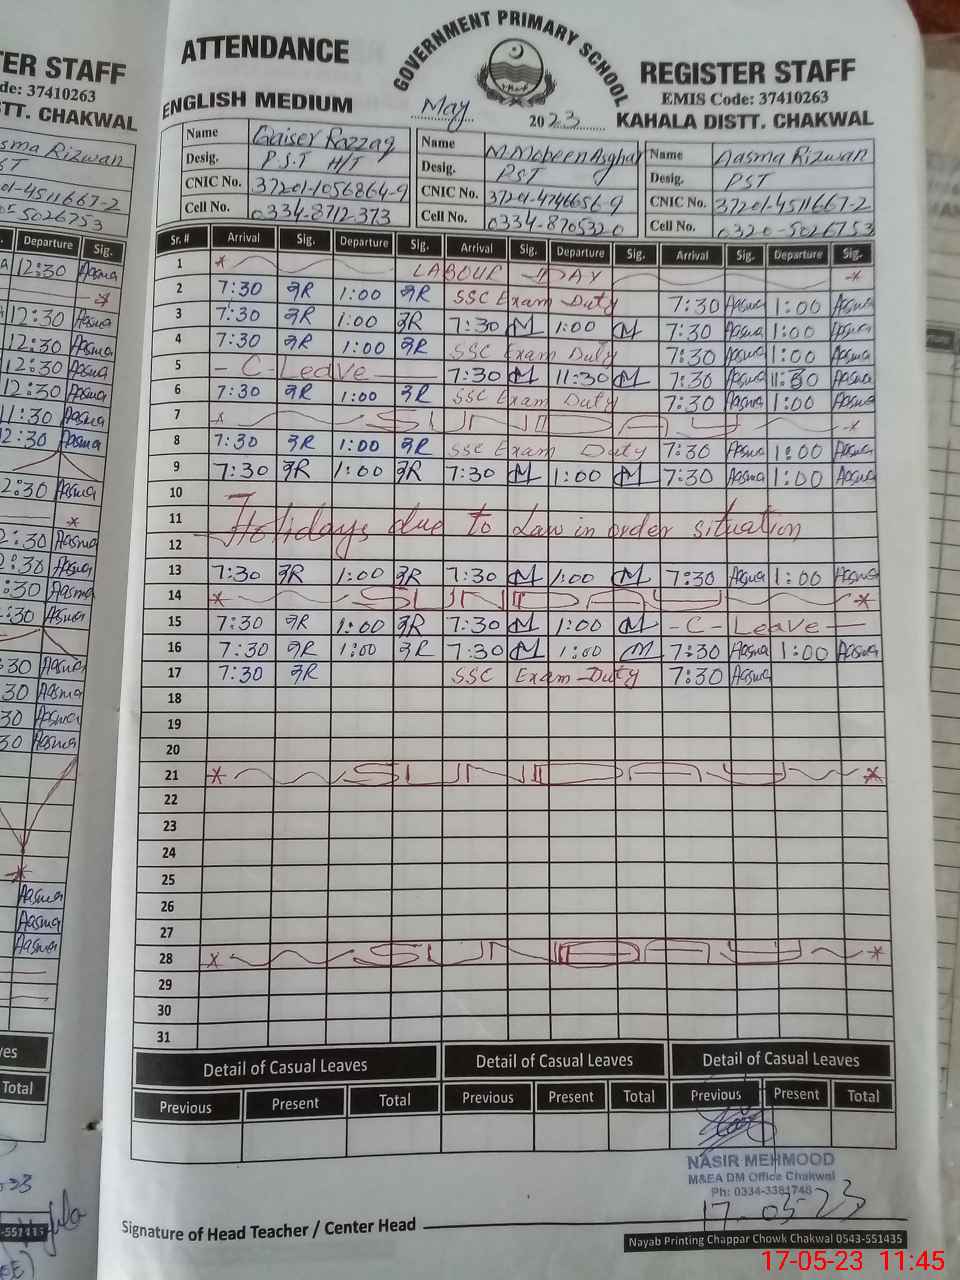 TER STAFF
de: 37410263
STT. CHAKWAL
asma Rizwan
ST
01-4511667-2
5026753
Departure Sig.
12:30 Aasma
12:30 Aasma
12:30 Aasma
12:30 Aasma
12:30 Aasma
11:30 Aasma
12:30 Aasma
2:30 Aasma
2:30 Aasma
2:30 Aasma
:30 Aasma
:30 Aasma
:30 Aasma
30 Aasma
30 Aasma
30 Aasma
Aasma
Aasma
Aasma
ves
Total
ATTENDANCE
GOVERNMENT PRIMARY SCHOOL
REGISTER STAFF
EMIS Code: 37410263
ENGLISH MEDIUM
May 2023
KAHALA DISTT. CHAKWAL
Name Qaiser Razzaq Name M Mobeen Asghar Name Aasma Rizwan
Desig. P.S.T H/T Desig. PST Desig. PST
CNIC No. 37201-1056864-9 CNIC No. 37201-4746656-9 CNIC No. 37201-4511667-2
Cell No. 0334-8712-373 Cell No. 0334-8705320 Cell No. 0320-5026753
Sr. # Arrival Sig. Departure Sig. Arrival Sig. Departure Sig. Arrival Sig. Departure Sig.
1 * LABOUR DAY *
2 7:30 QR 1:00 QR SSC Exam Duty 7:30 Aasma 1:00 Aasma
3 7:30 QR 1:00 QR 7:30 M 1:00 M 7:30 Aasma 1:00 Aasma
4 7:30 QR 1:00 QR SSC Exam Duty 7:30 Aasma 1:00 Aasma
5 - C-Leave 7:30 M 11:30 M 7:30 Aasma 11:30 Aasma
6 7:30 QR 1:00 QR SSC Exam Duty 7:30 Aasma 1:00 Aasma
7 * SUNDAY *
8 7:30 QR 1:00 QR SSC Exam Duty 7:30 Aasma 1:00 Aasma
9 7:30 QR 1:00 QR 7:30 M 1:00 M 7:30 Aasma 1:00 Aasma
10
11 Holidays due to Law in order situation
12
13 7:30 QR 1:00 QR 7:30 M 1:00 M 7:30 Aasma 1:00 Aasma
14 * SUNDAY *
15 7:30 QR 1:00 QR 7:30 M 1:00 M - C - Leave
16 7:30 QR 1:00 QR 7:30 M 1:00 M 7:30 Aasma 1:00 Aasma
17 7:30 QR SSC Exam Duty 7:30 Aasma
18
19
20
21 * SUNDAY *
22
23
24
25
26
27
28 * SUNDAY *
29
30
31
Detail of Casual Leaves Detail of Casual Leaves Detail of Casual Leaves
Previous Present Total Previous Present Total Previous Present Total
NASIR MEHMOOD
M&EA DM Office Chakwal
Ph: 0334-3381748
17-05-23
Signature of Head Teacher / Center Head
Nayab Printing Chappar Chowk Chakwal 0543-551435
17-05-23 11:45